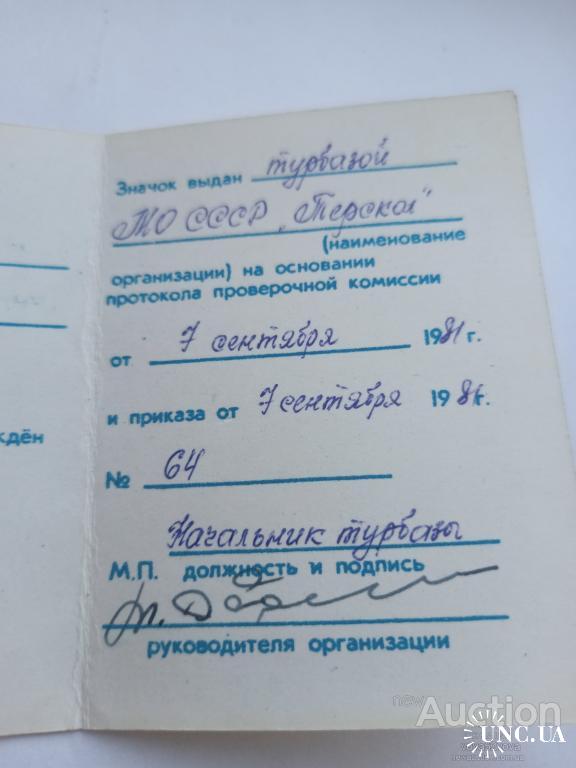 Значок выдан турбазой
МО СССР "Терскол"
(наименование
организации) на основании
протокола проверочной комиссии
от 7 сентября 1981г.
и приказа от 7 сентября 1981г.
№ 64
Начальник турбазы
М.П. должность и подпись
руководителя организации
ждён
Auction
UNC.UA